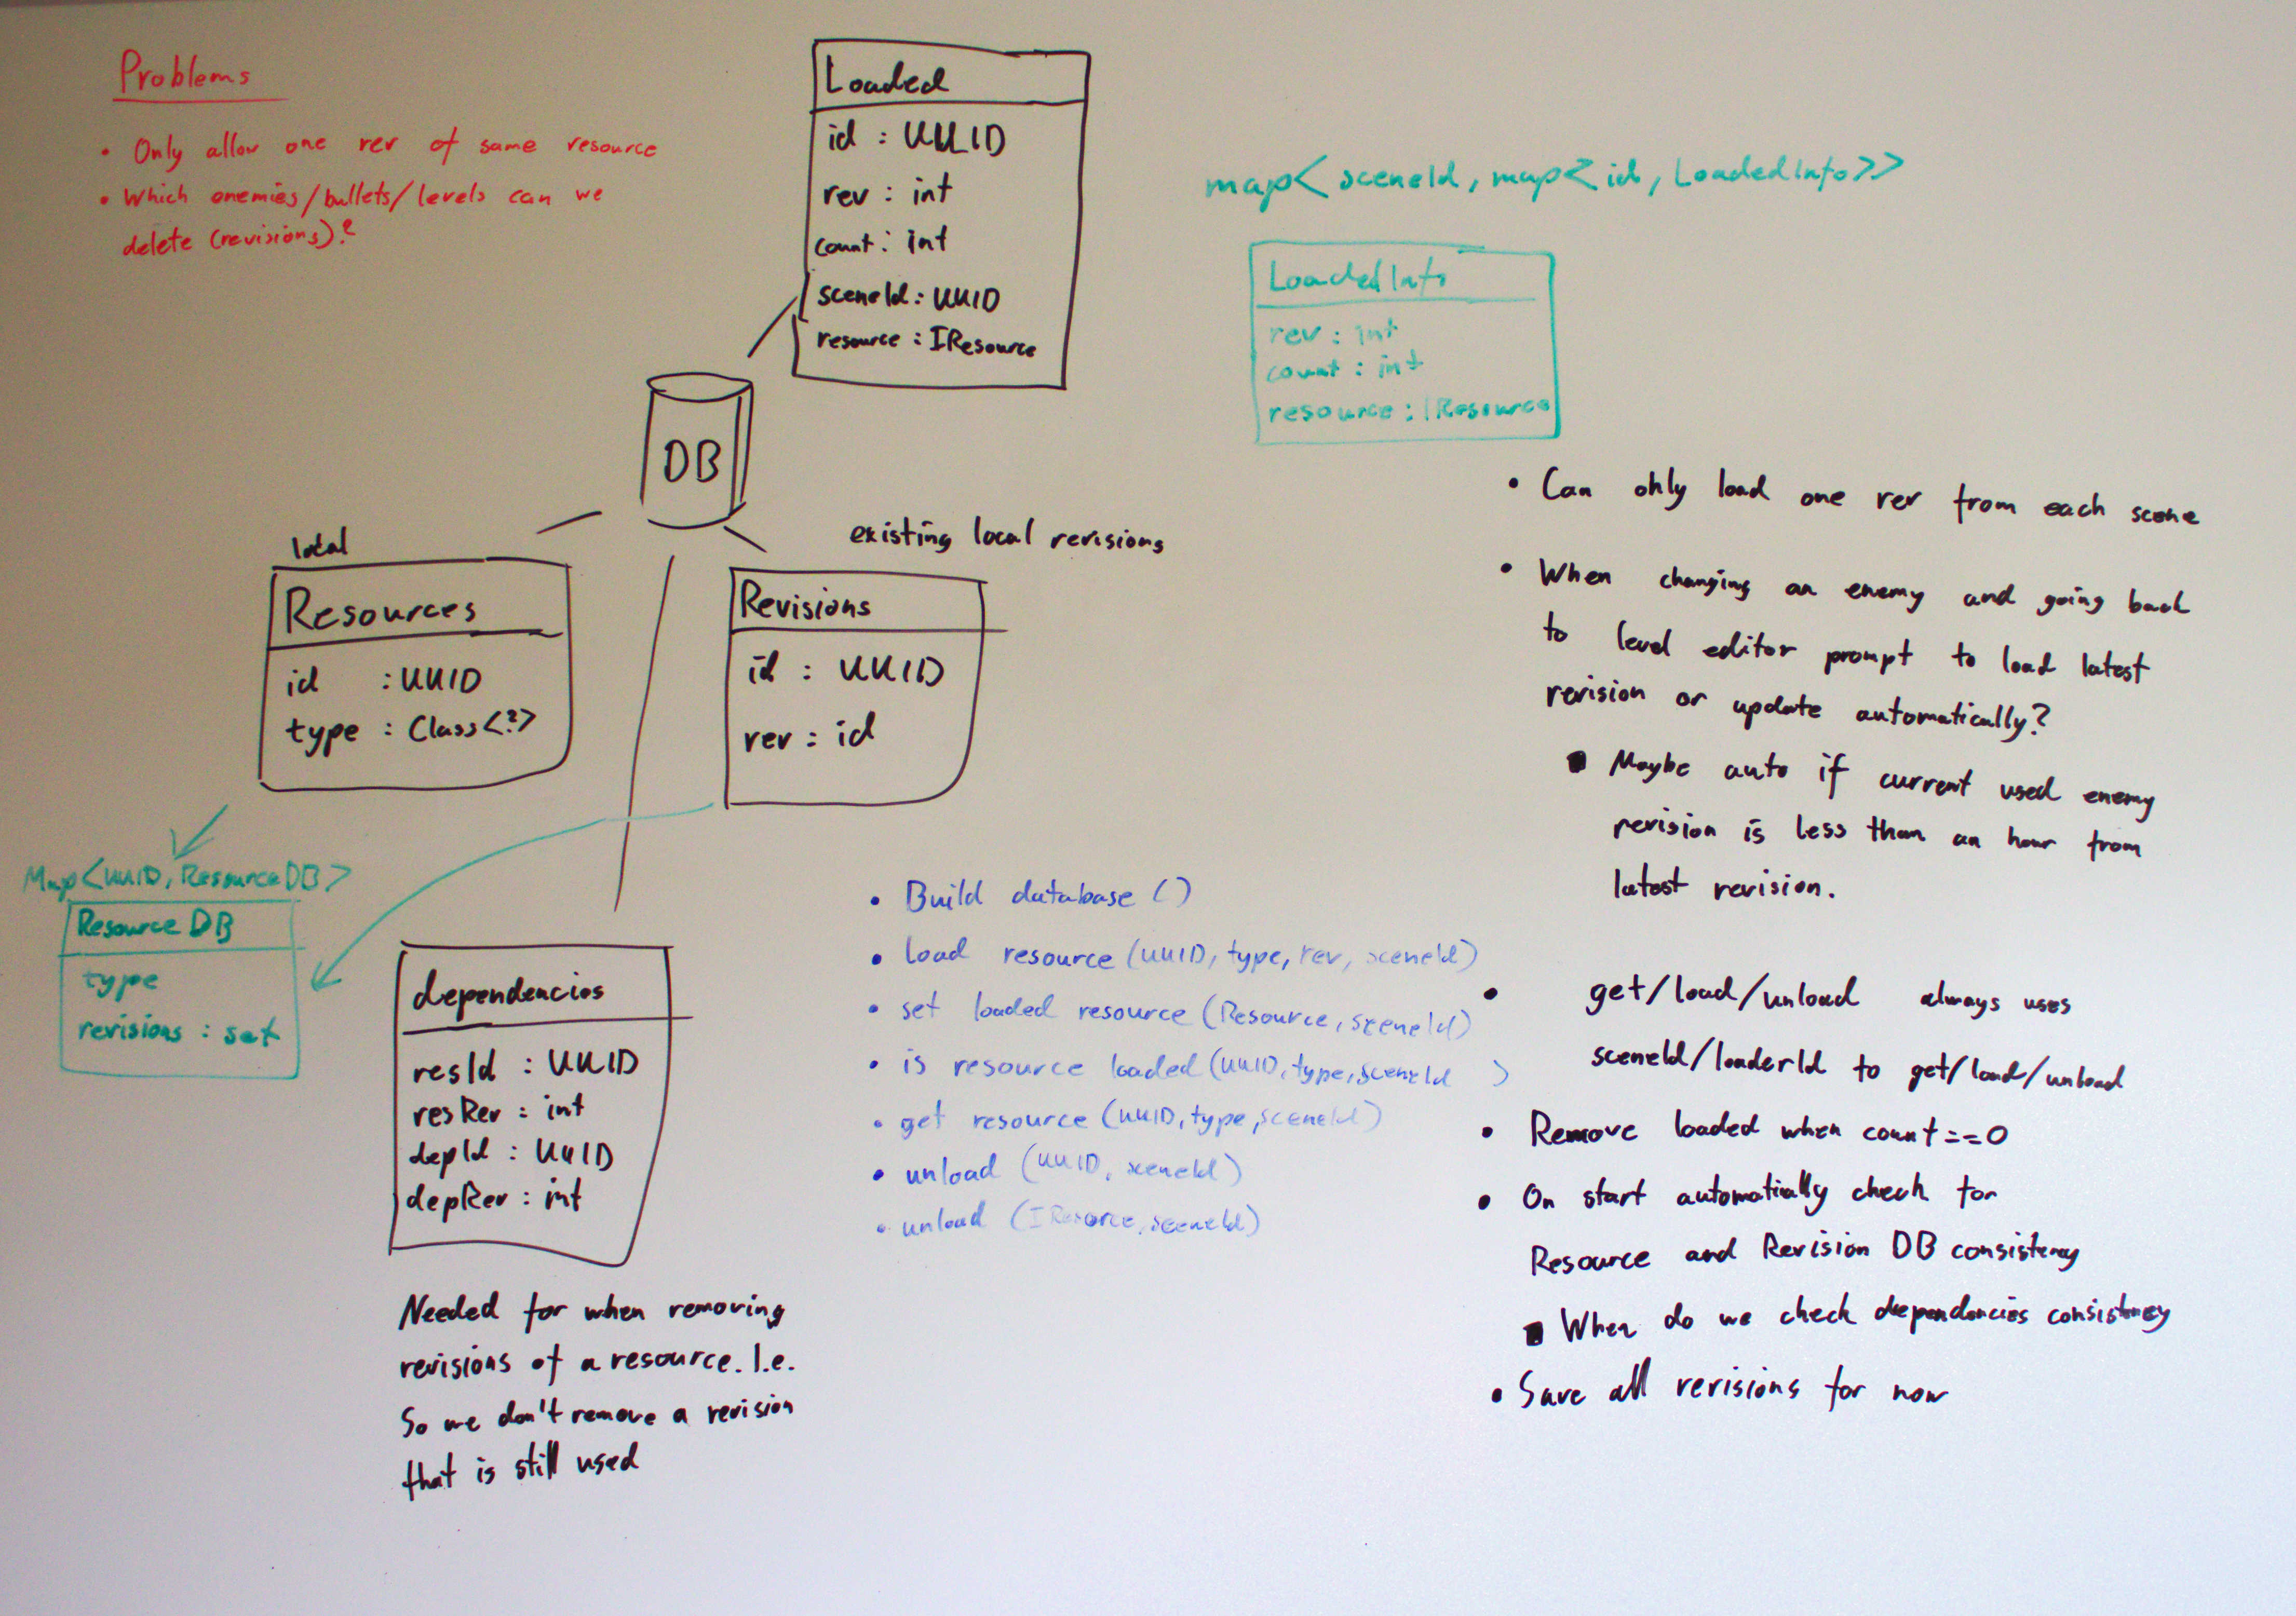 Problems
• Only allow one rev of same resource
• Which enemies/bullets/levels can we
delete (revisions)?
Loaded
id : UUID
rev : int
count : int
sceneId : UUID
resource : IResource
map<sceneId, map<id, LoadedInfo>>
LoadedInfo
rev : int
count : int
resource : IResource
DB
local
Resources
id : UUID
type : Class<?>
existing local revisions
Revisions
id : UUID
rev : id
Map<UUID, ResourceDB>
Resource DB
type
revisions : set
dependencies
resId : UUID
resRev : int
depId : UUID
depRev : int
Needed for when removing
revisions of a resource. I.e.
So we don't remove a revision
that is still used
• Build database ()
• load resource (UUID, type, rev, sceneId)
• set loaded resource (Resource, sceneId)
• is resource loaded (UUID, type, sceneId )
• get resource (UUID, type, sceneId)
• unload (UUID, sceneId)
• unload (IResorce, sceneId)
• Can only load one rev from each scene
• When changing an enemy and going back
to level editor prompt to load latest
revision or update automatically?
▪ Maybe auto if current used enemy
revision is less than an hour from
latest revision.
• get/load/unload always uses
sceneId/loaderId to get/load/unload
• Remove loaded when count==0
• On start automatially check for
Resource and Revision DB consisteny
▪ When do we check dependencies consisteney
• Save all revisions for now